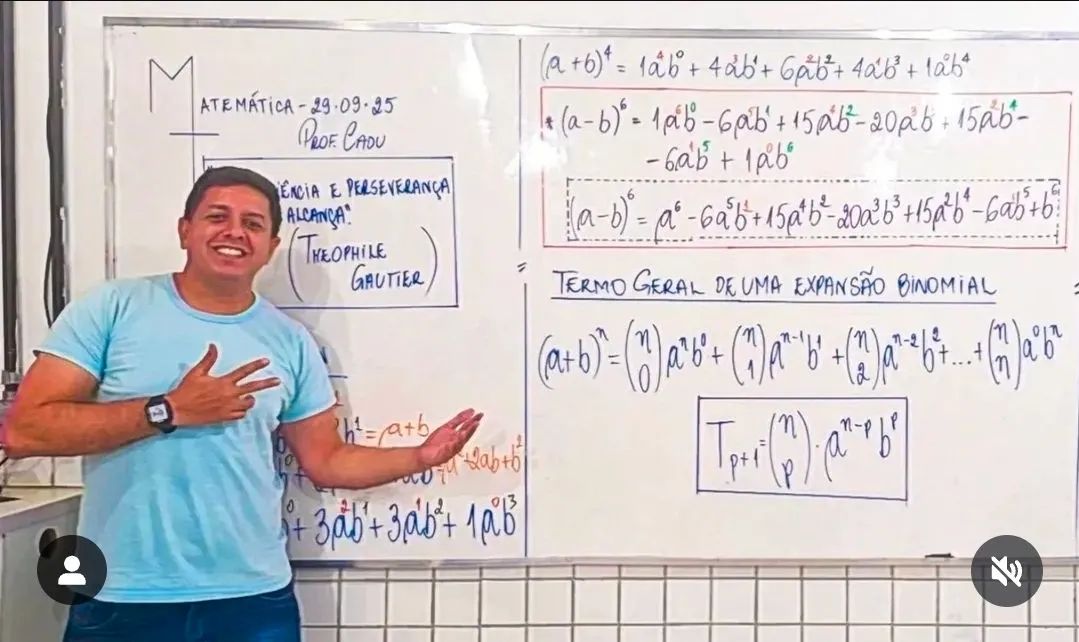 MATEMÁTICA - 29.09.25
PROF. CADU
ÊNCIA E PERSEVERANÇA
ALCANÇA".
(THEOPHILE
GAUTIER)
b¹ = a+b
+2ab+b²
+ 3a²b¹ + 3a¹b² + 1a⁰b³
(a+b)⁴ = 1a⁴b⁰ + 4a³b¹ + 6a²b² + 4a¹b³ + 1a⁰b⁴
* (a-b)⁶ = 1a⁶b⁰ - 6a⁵b¹ + 15a⁴b² - 20a³b³ + 15a²b⁴ -
- 6a¹b⁵ + 1a⁰b⁶
(a-b)⁶ = a⁶ - 6a⁵b¹ + 15a⁴b² - 20a³b³ + 15a²b⁴ - 6a¹b⁵ + b⁶
TERMO GERAL DE UMA EXPANSÃO BINOMIAL
(a+b)ⁿ = (n 0) aⁿb⁰ + (n 1) aⁿ⁻¹b¹ + (n 2) aⁿ⁻²b² + ... + (n n) a⁰bⁿ
Tₚ₊₁ = (n p) . aⁿ⁻ᵖ bᵖ